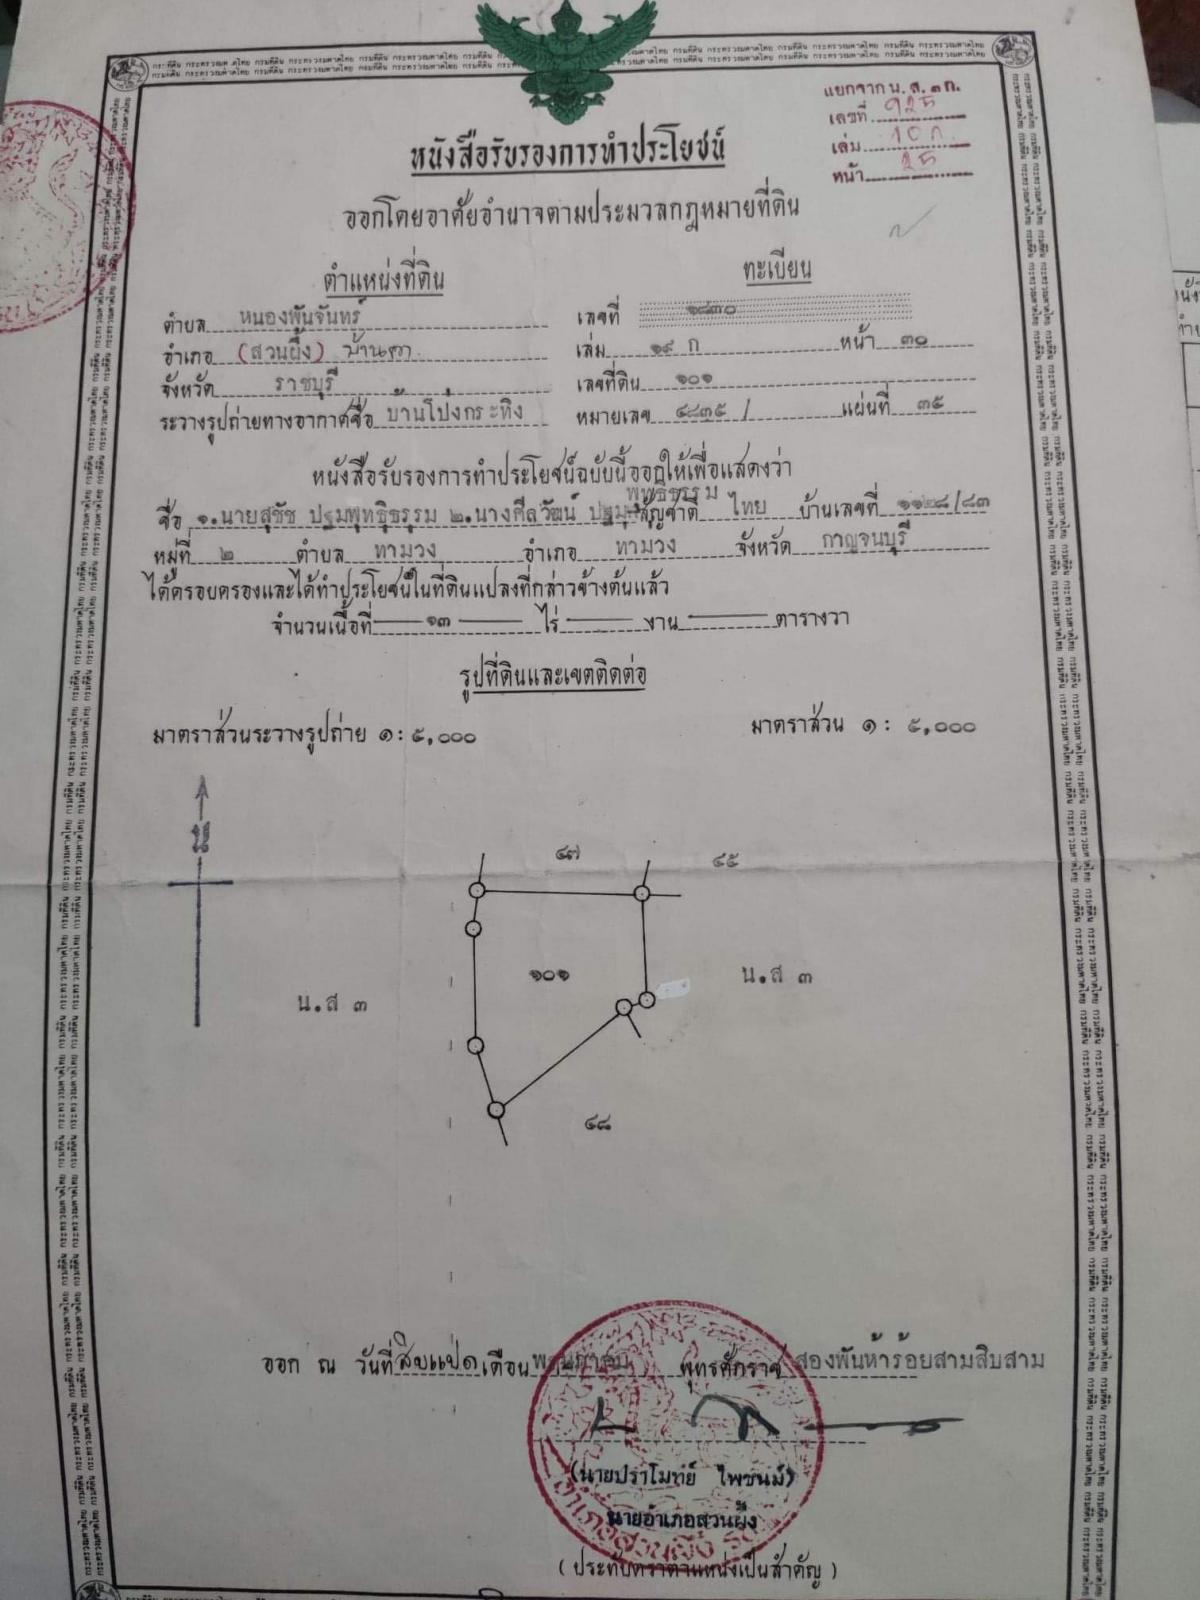 แยกจาก น.ส.๓ ก.
เลขที่ ๑๒๕
เล่ม ๑๐ ก.
หน้า ๒๕
หนังสือรับรองการทำประโยชน์
ออกโดยอาศัยอำนาจตามประมวลกฎหมายที่ดิน
ตำแหน่งที่ดิน ทะเบียน
ตำบล หนองพันจันทร์ เลขที่ ๑๘๓๐
อำเภอ (สวนผึ้ง) บ้านคา เล่ม ๑๙ ก หน้า ๓๐
จังหวัด ราชบุรี เลขที่ดิน ๑๐๑
ระวางรูปถ่ายทางอากาศชื่อ บ้านโป่งกระทิง หมายเลข ๔๘๓๕ / แผ่นที่ ๓๕
หนังสือรับรองการทำประโยชน์ฉบับนี้ออกให้เพื่อแสดงว่า
พุทธิธรรม
ชื่อ ๑.นายสุชัช ปฐมพุทธิธรรม ๒.นางศีลวัฒน์ ปฐม สัญชาติ ไทย บ้านเลขที่ ๑๑๒๘/๘๓
หมู่ที่ ๒ ตำบล ทามวง อำเภอ ทามวง จังหวัด กาญจนบุรี
ได้ครอบครองและได้ทำประโยชน์ในที่ดินแปลงที่กล่าวข้างต้นแล้ว
จำนวนเนื้อที่ ๑๓ ไร่ งาน ตารางวา
รูปที่ดินและเขตติดต่อ
มาตราส่วนระวางรูปถ่าย ๑ : ๕,๐๐๐ มาตราส่วน ๑ : ๕,๐๐๐
น
๔๗ ๔๕
๑๐๑
น.ส ๓ น.ส ๓
๔๘
ออก ณ วันที่ สิบแปด เดือน พฤษภาคม พุทธศักราช สองพันห้าร้อยสามสิบสาม
(นายปราโมทย์ ไพชนม์)
นายอำเภอสวนผึ้ง
(ประทับตราตำแหน่งเป็นสำคัญ)